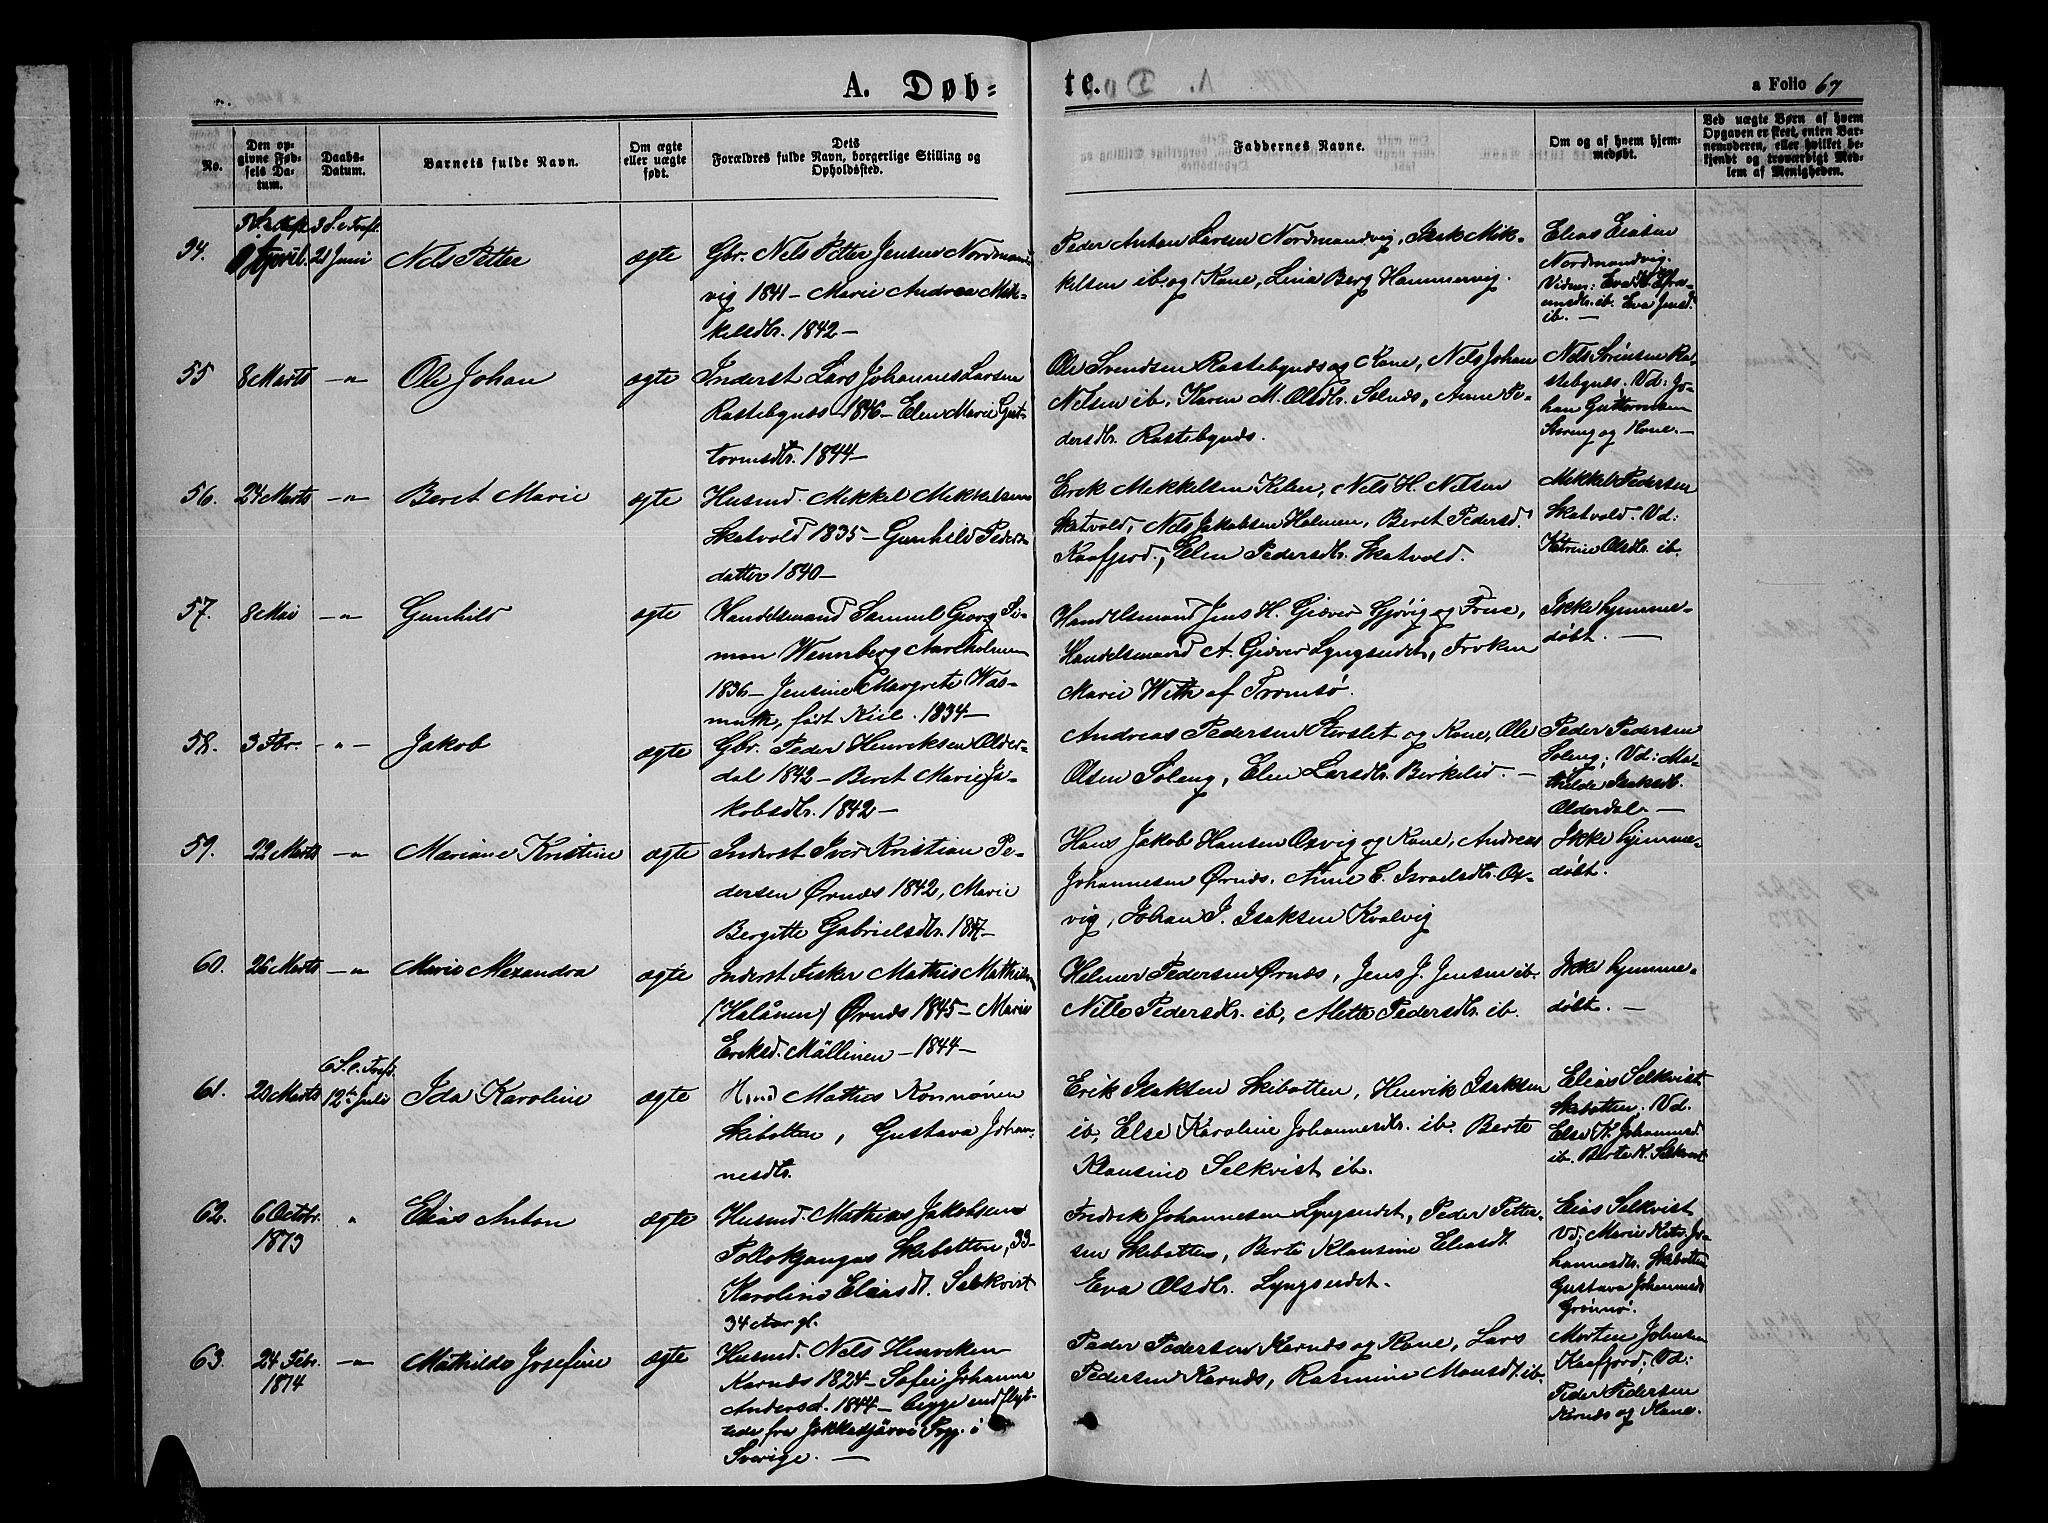 A. Døb=
te.
a Folio 67
No.
Den op=
givne Fød=
sels Da=
tum.
Daabs=
Datum.
Barnets fulde Navn.
Om ægte
eller uægte
født.
Dets
Forældres fulde Navn, borgerlige Stilling og
Opholdssted.
Faddernes Navne.
Om og af hvem hjem=
medøbt.
Ved uægte Børn af hvem
Opgaven er skeet, enten Bar=
nemoderen, eller hvilket be=
kjendt og troværdigt Med=
lem af Menigheden.
3 S. e. Treft.
94.
April
21 Juni
Nels Petter
ægte
Gbr. Nels Petter Jensen Nordmand
vig 1841 - Marie Andrea Mik-
kelsdtr. 1842 -
Peder Anton Larsen Nordmandvig, Isak Mik-
kelsen ib. og Kone, Lina Berg Hammervig.
Elias
Nordmandvig.
Vidn: Eva
ib. Eva Jensd.
ib. -
55
8 Marts
-"-
Ole Johan
ægte
Inderst Lars Johannes Larsen
Rastebynæs 1846 - Elen Marie Gut-
tormsdtr. 1844 -
Ole Svendsen Rastebynæs og Kone, Nels Johan
Nelsen ib, Karen M. Olsdtr. Solnæs, Anne Pe-
dersdtr. Rastebynæs.
Nels Sørensen Ras
tebynæs. Vd: Jo-
han Guttormsen
og Kone. -
56.
24 Marts
-"-
Beret Marie
ægte
Husmd. Mikkel Mikkelsen
Skatvold 1835 - Gunhild Peders-
datter 1840 -
Erik Mikkelsen Kilen, Nels H. Nilsen
Skatvold, Nels Jakobsen Holmen, Beret Pedersd.
Kaafjord, Elen Pedersdtr. Skatvold.
Mikkel Pedersen
Skatvold. Vd:
Katrine Olsdtr. ib.
57.
8 Mai
-"-
Gunhild
ægte
Handelsmand Samuel Georg Si-
mon Wennberg Aarholmen
1836 - Jensine Margrete Was-
muth, født Kiil. 1834 -
Handelsmand Jens H. Giæver Gjøvig og Frue,
Handelsmand A. Giæver Lyngseidet, Frøken
Marie With af Tromsø.
Ikke hjemme-
døbt. -
58.
3 Fbr.
-"-
Jakob
ægte
Gbr. Peder Henriksen Older-
dal 1842 - Beret Marie Ja-
kobsdtr. 1842 -
Andreas Pedersen Storslet og Kone, Ole
Olsen Soleng, Elen Larsdtr. Birkelid. -
Peder Pedersen
Soleng; Vd: Ma-
thilde Isaksdtr.
Olderdal. -
59.
22 Marts
-"-
Mariane Kristine
ægte
Inderst Iver Kristian Pe-
dersen Ørnæs 1842, Marie
Bergitte Gabrielsdtr. 1847 -
Hans Jakob Hansen Oxvig og Kone, Andreas
Johannesen Ørnæs. Anne E. Israelsdtr. Ox-
vig, Johan J. Isaksen Kvalvig
Ikke hjemme-
døbt.
60.
26 Marts
-"-
Marie Alexandra
ægte
Inderst Fisker Mathis Mathisen
(Halånen) Ørnæs 1845 - Marie
Eriksd. Mällinen - 1844 -
Helmer Pedersen Ørnæs, Jens J. Jensen ib.
Nille Pedersdtr. ib, Alette Pedersdtr. ib.
Ikke hjemme-
døbt. -
6 S. e. Treft.
61.
20 Marts
12te Juli
Ida Karoline
ægte
Mathis
Skibotten, Gustava Johan-
nesdtr.
Erik Isaksen Skibotten, Henrik Isaksen
ib, Else Karoline Johannesdtr. ib. Berte
Klausine Selkvist ib.
Elias Selkvist
Skibotten. Vd.
Else K. Johannesd.
ib. Berte K. Selkvist
62.
6 Octbr.
1873
"
Elias Anton
ægte
Husmd. Mathias Jakobsen
Skibotten, 33 -
Karoline Eliasdt. Selkvist
34 Aar gl.
Fredrik Johannesen Lyngseidet, Peder Petter-
sen Skibotten, Berte Klausine Eliasdt.
Eva Olsdtr. Lyngseidet.
Elias Selkvist
Vd: Marie Katr. Jo-
hannesdtr. Skibotten
Gustava Johannesdt
63.
24 Febr.
1874
-"-
Mathilde Josefine
ægte
Husmd. Nels Henriksen
Karnæs 1824 - Sofie Johanna
Andersd. 1844 - begge indflyt-
tede fra Jokkasjärvi Prgj. i
Sverige. -
Peder Pedersen Karnæs og Kone, Lars
Pedersen Karnæs, Rasmine Monsdt. ib.
Morten Johnsen
Kaafjord; Vd:
Peder Pedersen
Karnæs og Kone.